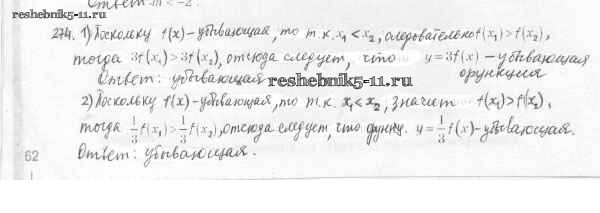 Ответ: m < -2.
274. 1) Поскольку f(x) – убывающая, то т.к. x₁ < x₂, следовательно f(x₁) > f(x₂),
тогда 3f(x₁) > 3f(x₂), отсюда следует, что y = 3f(x) – убывающая
функция
Ответ: убывающая
reshebnik5-11.ru
reshebnik5-11.ru
2) Поскольку f(x) – убывающая, то т.к. x₁ < x₂, значит f(x₁) > f(x₂),
тогда 1/3 f(x₁) > 1/3 f(x₂), отсюда следует, что функ. y = 1/3 f(x) – убывающая.
62
Ответ: убывающая.